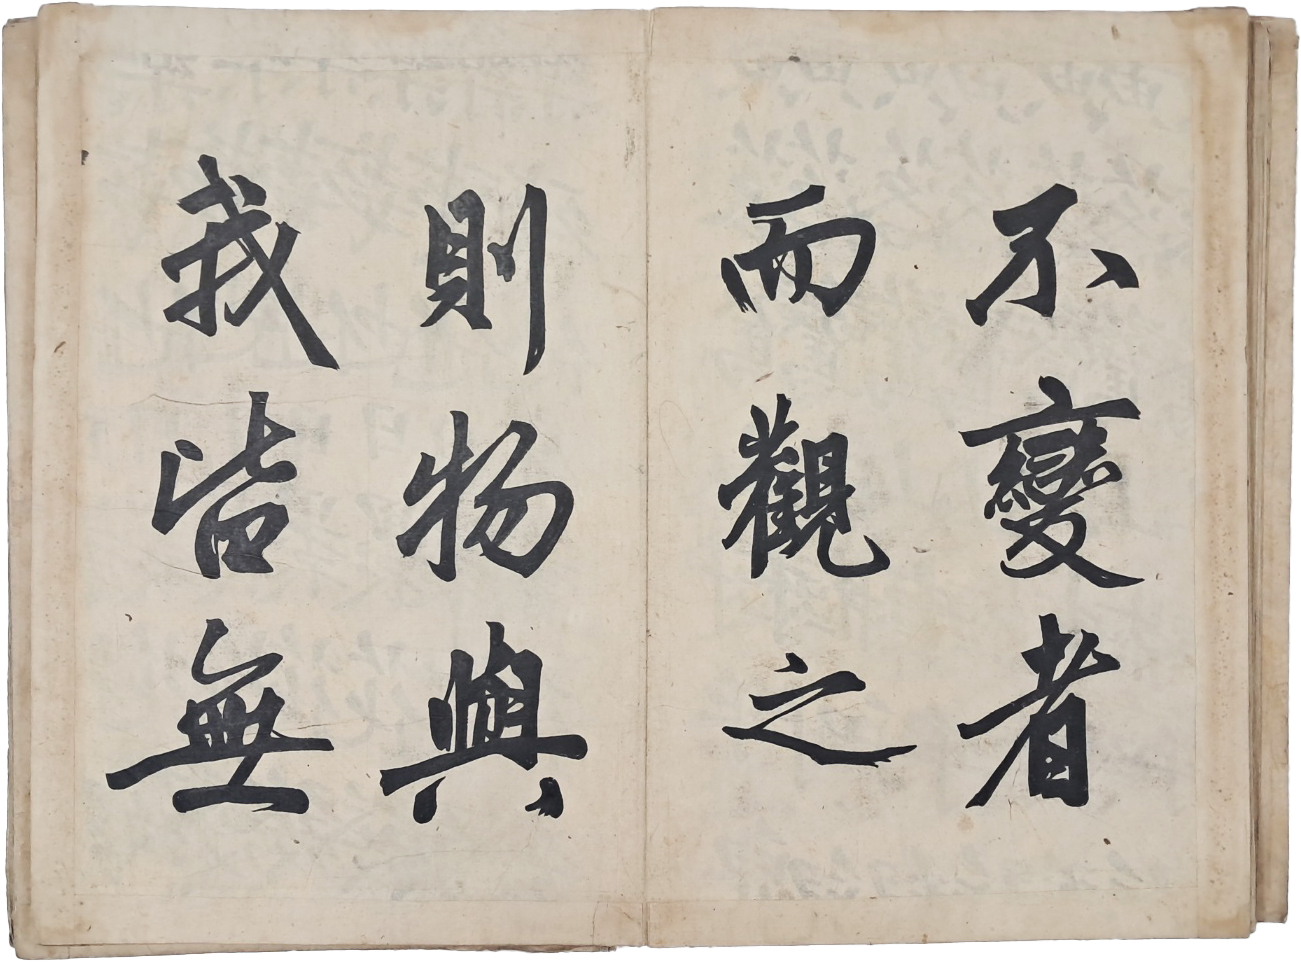 不變者
而觀之
則物與
我皆無